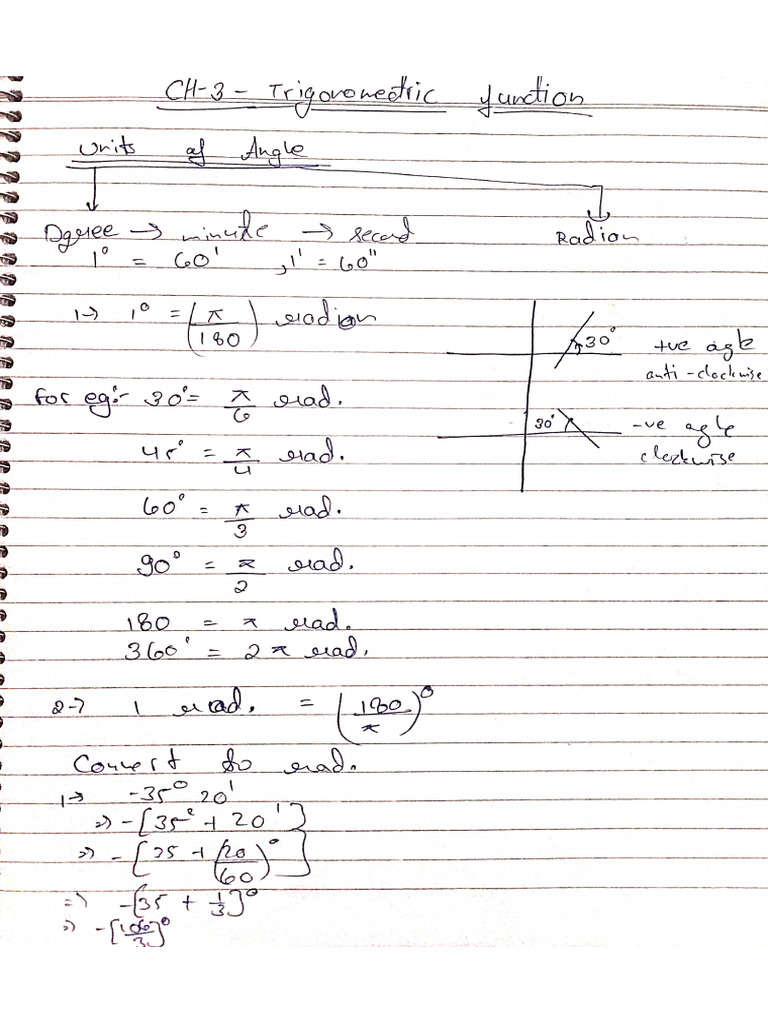 CH-3 - Trigonometric function
Units of Angle
Dgree → minute → second
Radian
1° = 60' , 1' = 60"
1→ 1° = (π/180) radian
30°
+ve agle
anti-clockwise
For eg:- 30° = π/6 rad.
30°
-ve agle
clockwise
45° = π/4 rad.
60° = π/3 rad.
90° = π/2 rad.
180 = π rad.
360° = 2π rad.
2→ 1 rad. = (180/π)°
Convert to rad.
1→ -35° 20'
⇒ -[35° + 20']
⇒ -[35 + (20/60)°]
⇒ -[35 + 1/3]°
⇒ -[106/3]°